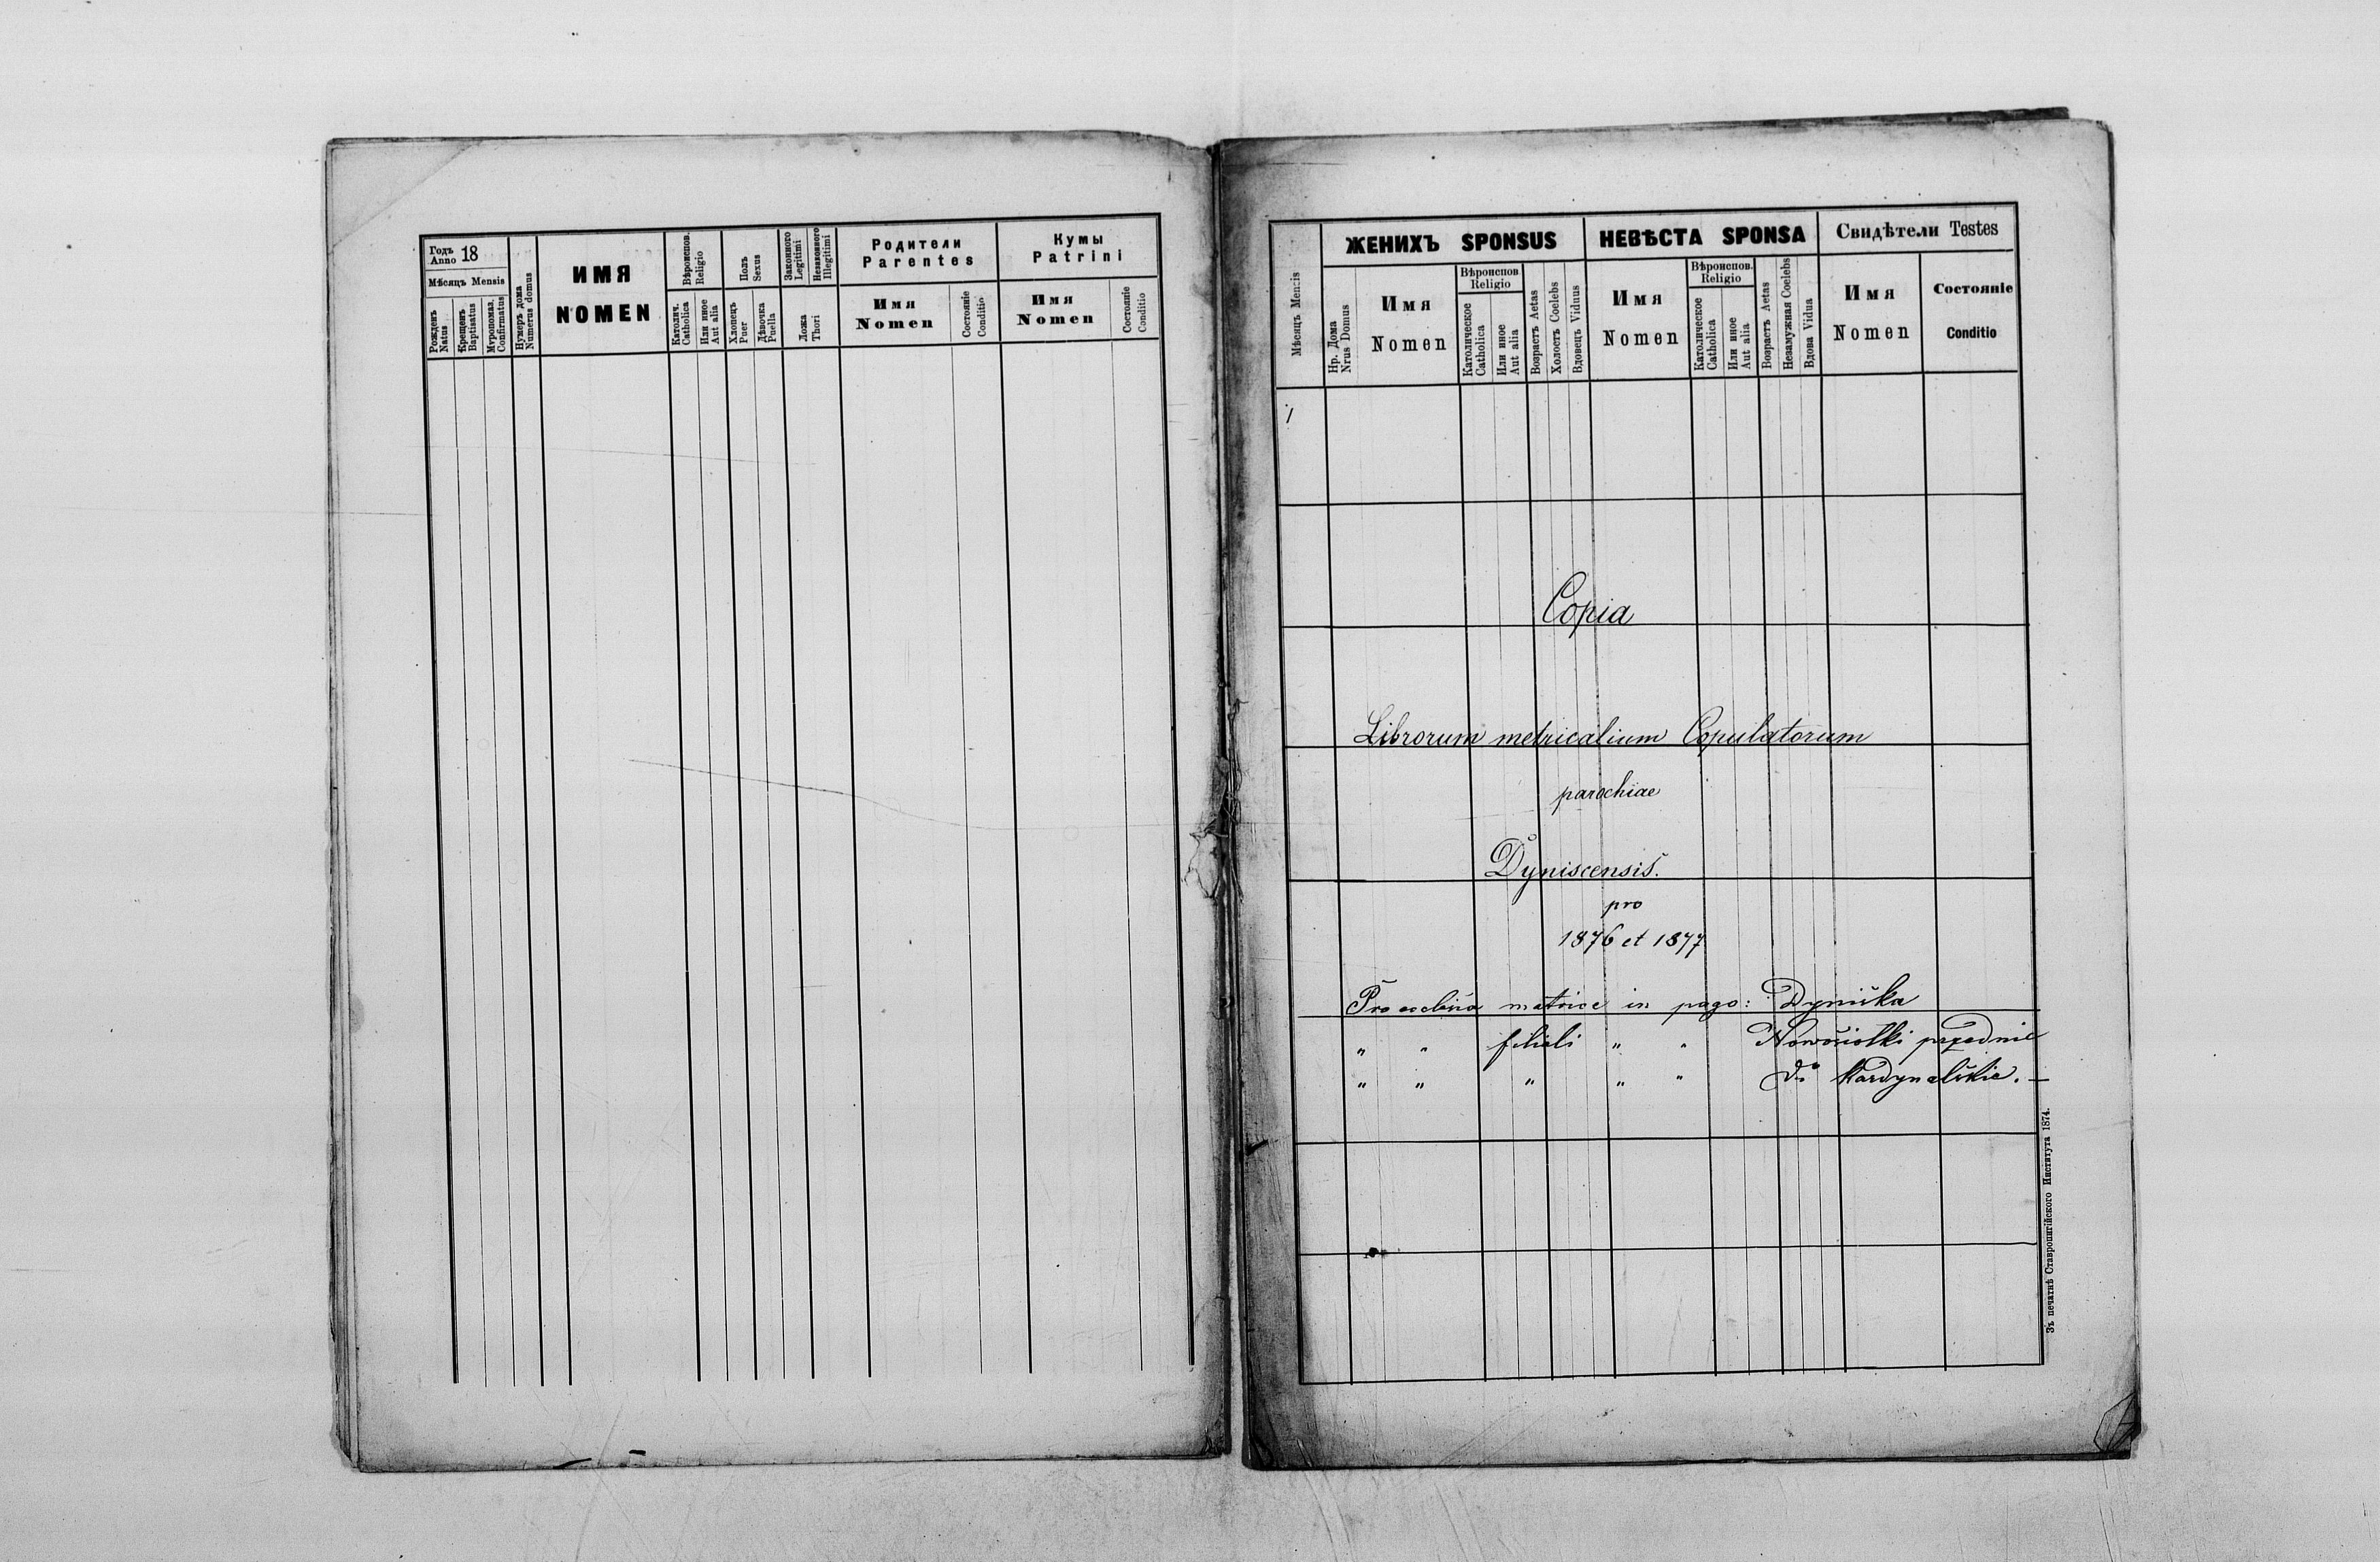 Годъ Anno 18
Мѣсяцъ Mensis
Рожденъ Natus
Крещенъ Baptisatus
Мѵропомаз. Confirmatus
Нумеръ дома Numerus domus
ИМЯ
NOMEN
Вѣроиспов. Religio
Католич. Catholica
Или иное Aut alia
Полъ Sexus
Хлопецъ Puer
Дѣвочка Puella
Законного Legitimi
Незаконного Illegitimi
Ложа Thori
Родители
Parentes
Имя
Nomen
Состояніе Conditio
Кумы
Patrini
Имя
Nomen
Состояніе Conditio
Мѣсяцъ Mencis
ЖЕНИХЪ SPONSUS
Нр. Дома Nrus Domus
Имя
Nomen
Вѣроиспов
Religio
Католическое Catholica
Или иное Aut alia
Возрастъ Aetas
Холостъ Coelebs
Вдовецъ Viduus
НЕВѢСТА SPONSA
Имя
Nomen
Вѣроиспов.
Religio
Католическое Catholica
Или иное Aut alia
Возрастъ Aetas
Незамужная Coelebs
Вдова Vidua
Свидѣтели Testes
Имя
Nomen
Состояніе
Conditio
1
Copia
Librorum metricalium Copulatorum
parochiae
Dyniscensis.
pro
1876 et 1877
Pro ecclesia matrice in pago: Dyniska
" " filiali " " Nowosiolki przednie
" " " " " dto Kardynalskie. —
Зъ печатнѣ Ставропигійского Института 1874.